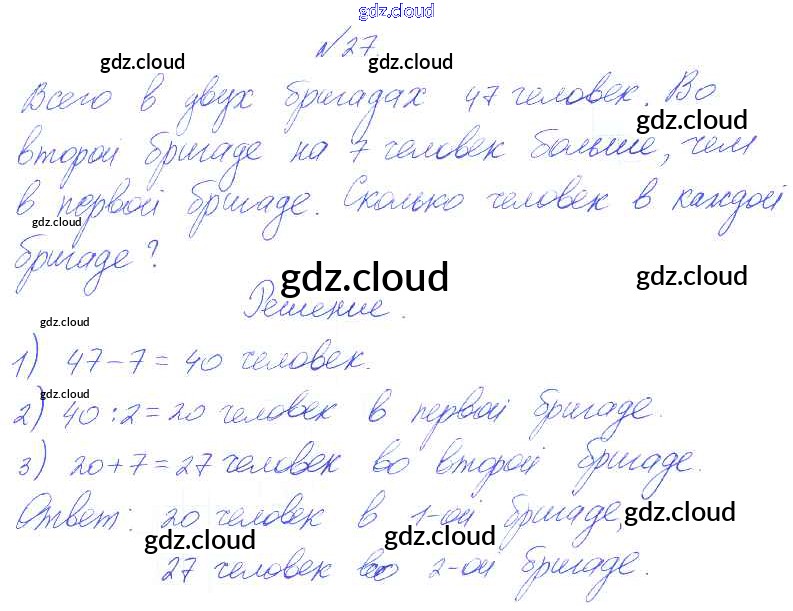 gdz.cloud
№27.
gdz.cloud gdz.cloud
Всего в двух бригадах 47 человек. Во
gdz.cloud
второй бригаде на 7 человек больше, чем
в первой бригаде. Сколько человек в каждой
gdz.cloud
бригаде?
gdz.cloud gdz.cloud
Решение.
gdz.cloud
1) 47-7=40 человек.
gdz.cloud
2) 40:2=20 человек в первой бригаде.
3) 20+7=27 человек во второй бригаде.
Ответ: 20 человек в 1-ой бригаде,
gdz.cloud gdz.cloud
27 человек во 2-ой бригаде.